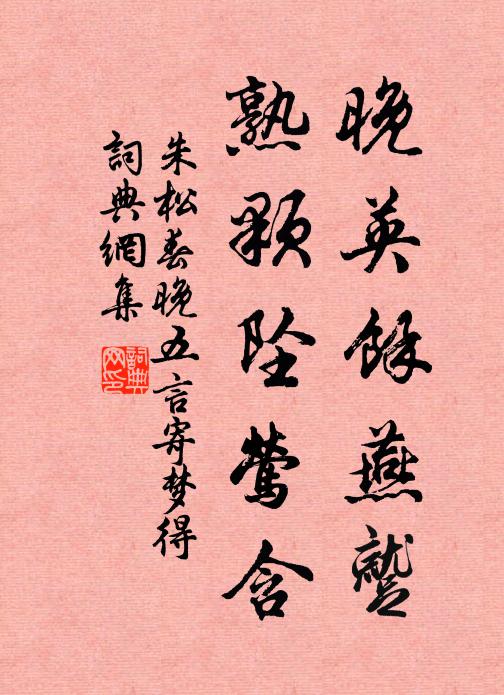 晚英餘燕蹙
熟顆墜鶯含
朱松春晚五言寄梦得
詞典網集
詞典
网印